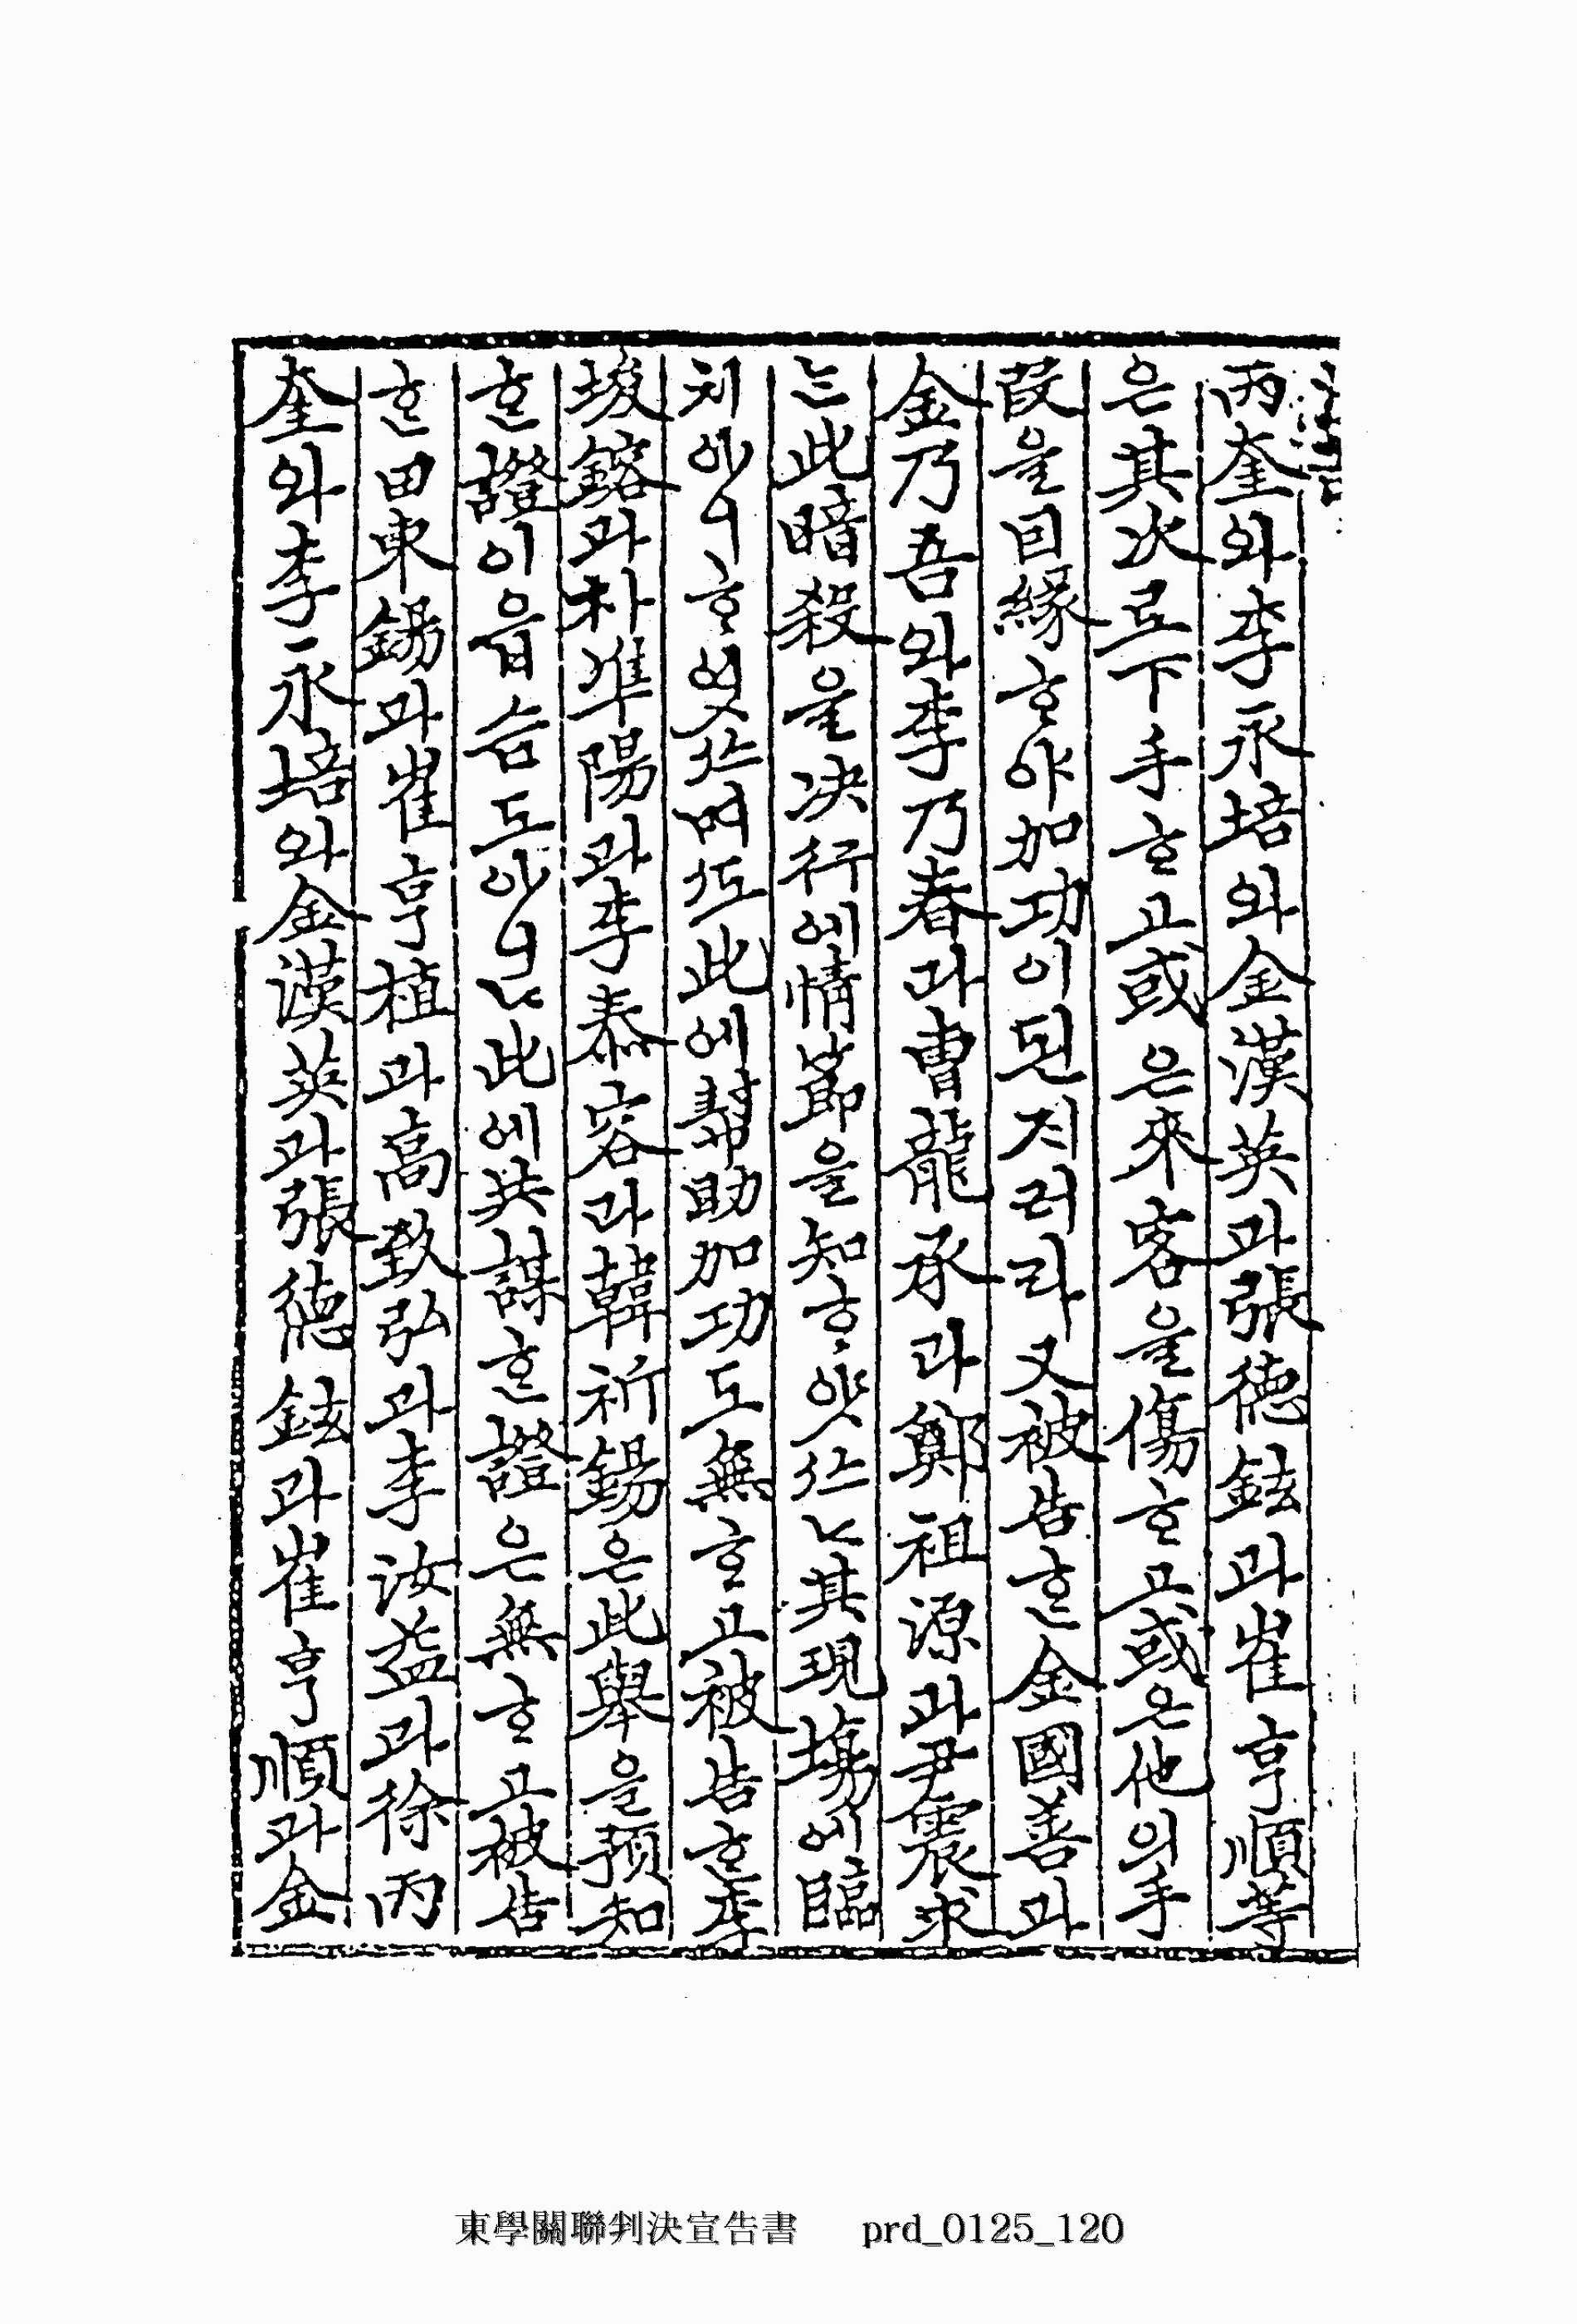 丙奎와李永培와金漢英과張德鉉과崔亨順等
은其次로下手ᄒᆞ고或은來客을傷ᄒᆞ고或은他의手
段을因緣ᄒᆞ야加功이된지러라又被告ᄒᆞᆫ金國善과
金乃吾와李乃春과曺龍承과鄭祖源과尹震求
ᄂᆞᆫ此暗殺을决行에情節을知ᄒᆞ얏스ᄂᆞ其現塲에臨
치아니ᄒᆞ엿스며ᄯᅩ此에幇助加功도無ᄒᆞ고被告ᄒᆞᆫ李
埈鎔과朴準陽과李泰容과韓祈錫은此擧을預知
ᄒᆞᆫ證이읍슴도아니ᄂᆞ此에共謀ᄒᆞᆫ證은無ᄒᆞ고被告
ᄒᆞᆫ田東錫과崔亨植과高致弘과李汝益과徐丙
奎와李永培와金漢英과張德鉉과崔亨順과金
東學關聯判決宣告書 prd_0125_120